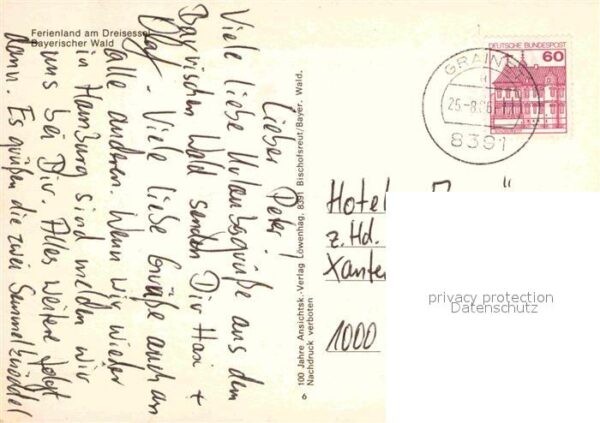 Ferienland am Dreisessel
Bayerischer Wald
Lieber Peter!
Viele liebe Urlaubsgrüße aus dem
Bayrischen Wald senden Dir Hari +
Olaf. Viele liebe Grüße auch an
alle anderen. Wenn wir wieder
in Hamburg sind melden wir
uns bei Dir. Alles weitere folgt
dann. Es grüßen die zwei Semmelknödel
100 Jahre Ansichtsk.-Verlag Löwenhag, 8391 Bischofsreut/Bayer. Wald.
Nachdruck verboten
DEUTSCHE BUNDESPOST
60
GRAINET
25.-8.86
8391
Hotel
z. Hd.
Xanten
1000
privacy protection
Datenschutz